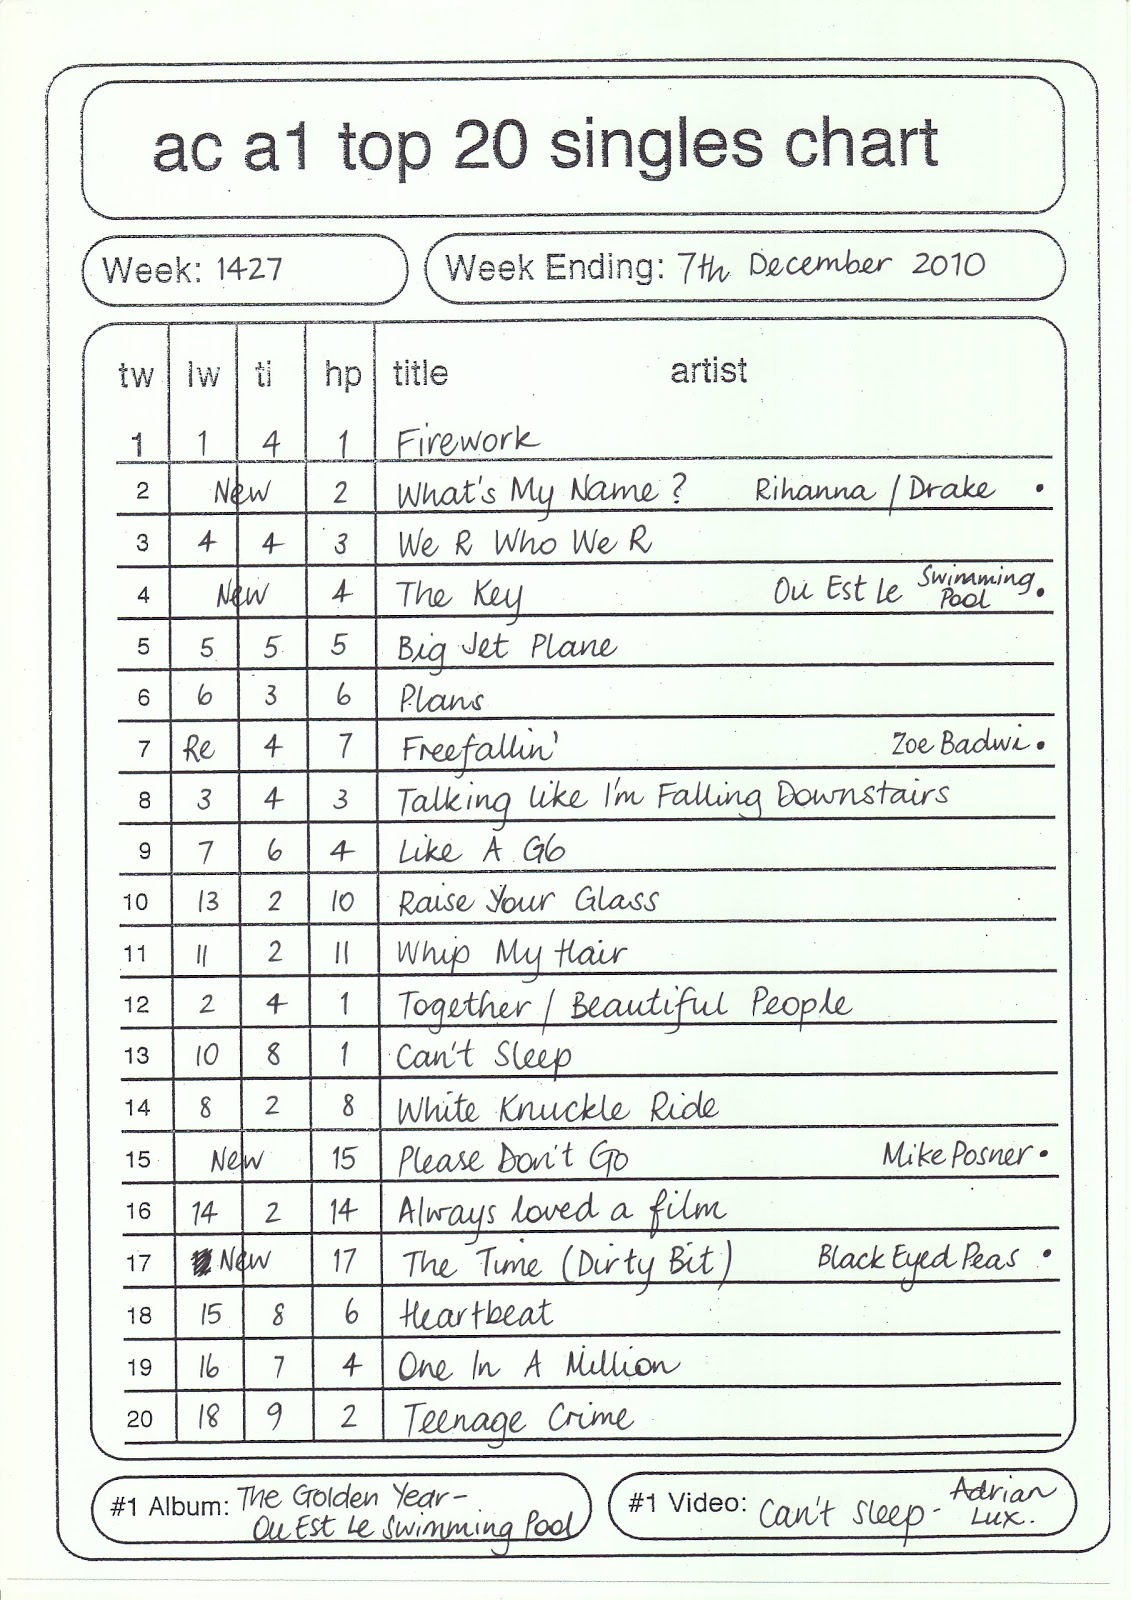 ac a1 top 20 singles chart
Week: 1427 Week Ending: 7th December 2010
tw lw ti hp title artist
1 1 4 1 Firework
2 New 2 What's My Name? Rihanna / Drake •
3 4 4 3 We R Who We R
4 New 4 The Key Ou Est Le Swimming Pool •
5 5 5 5 Big Jet Plane
6 6 3 6 Plans
7 Re 4 7 Freefallin' Zoe Badwi •
8 3 4 3 Talking like I'm Falling Downstairs
9 7 6 4 Like A G6
10 13 2 10 Raise Your Glass
11 11 2 11 Whip My Hair
12 2 4 1 Together / Beautiful People
13 10 8 1 Can't Sleep
14 8 2 8 White Knuckle Ride
15 New 15 Please Don't Go Mike Posner •
16 14 2 14 Always loved a film
17 New 17 The Time (Dirty Bit) Black Eyed Peas •
18 15 8 6 Heartbeat
19 16 7 4 One In A Million
20 18 9 2 Teenage Crime
#1 Album: The Golden Year -
Ou Est Le Swimming Pool
#1 Video: Can't Sleep - Adrian
Lux.